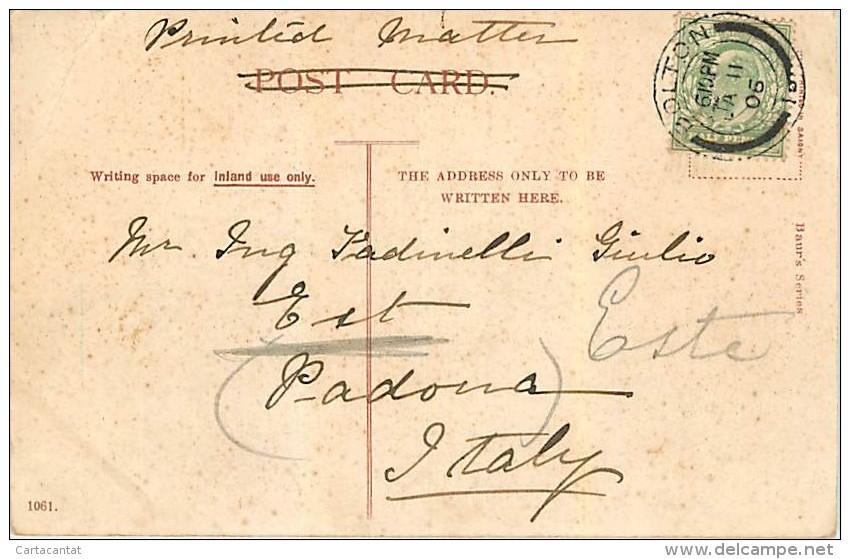 Printed Matter
POST CARD.
BOLTON
6 15 PM
JA 11
05
Writing space for Inland use only.
THE ADDRESS ONLY TO BE
WRITTEN HERE.
Baur's Series
Mr Ing Giulio
Est
Este
(Padova)
Italy
1061.
Cartacantat
www.delcampe.net